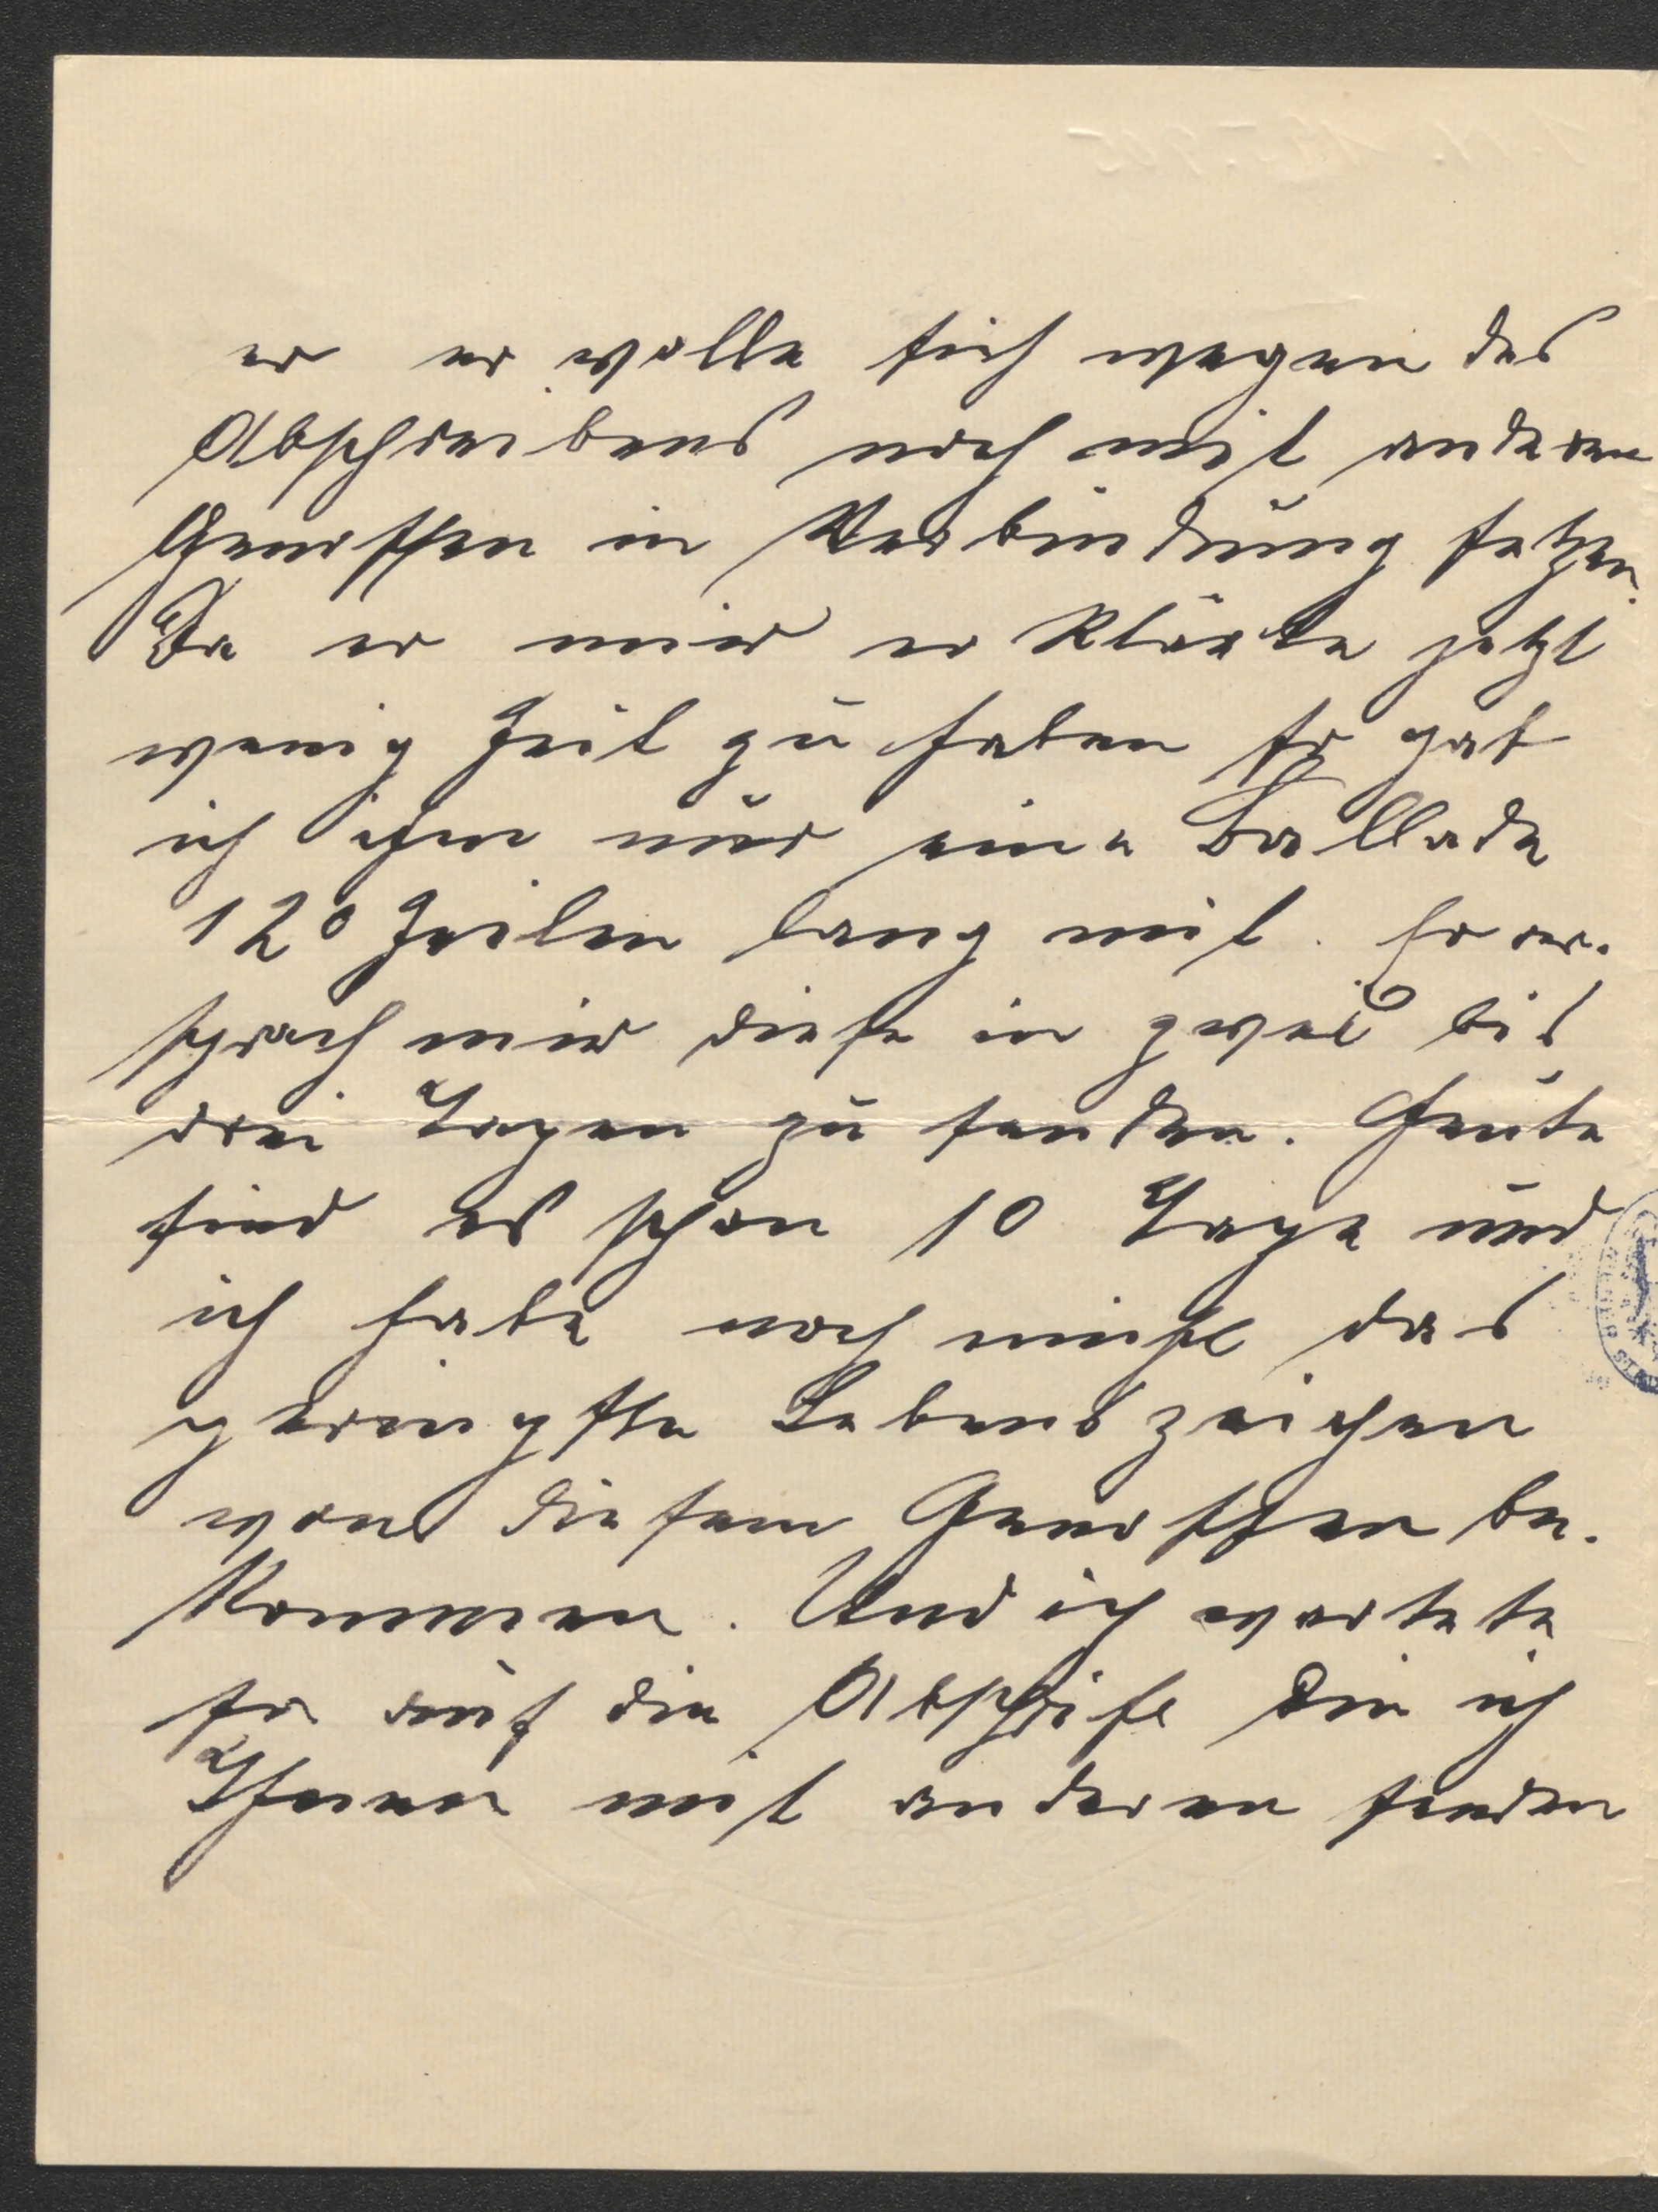 er er wolle sich wegen des
Abschreibens noch mit anderen
Genossen in Verbindung setzen.
Da er mir erklärte jetzt
wenig Zeit zu haben so gab
ich ihm nur eine Ballade
120 Zeilen lang mit. Er ver-
sprach mir diese in zwei bis
drei Tagen zu senden. Heute
sind es schon 10 Tage und
ich habe noch nicht das
geringste Lebenszeichen
von diesem Genossen be-
kommen. Und ich wartete
so auf die Abschrift die ich
Ihnen mit anderen senden